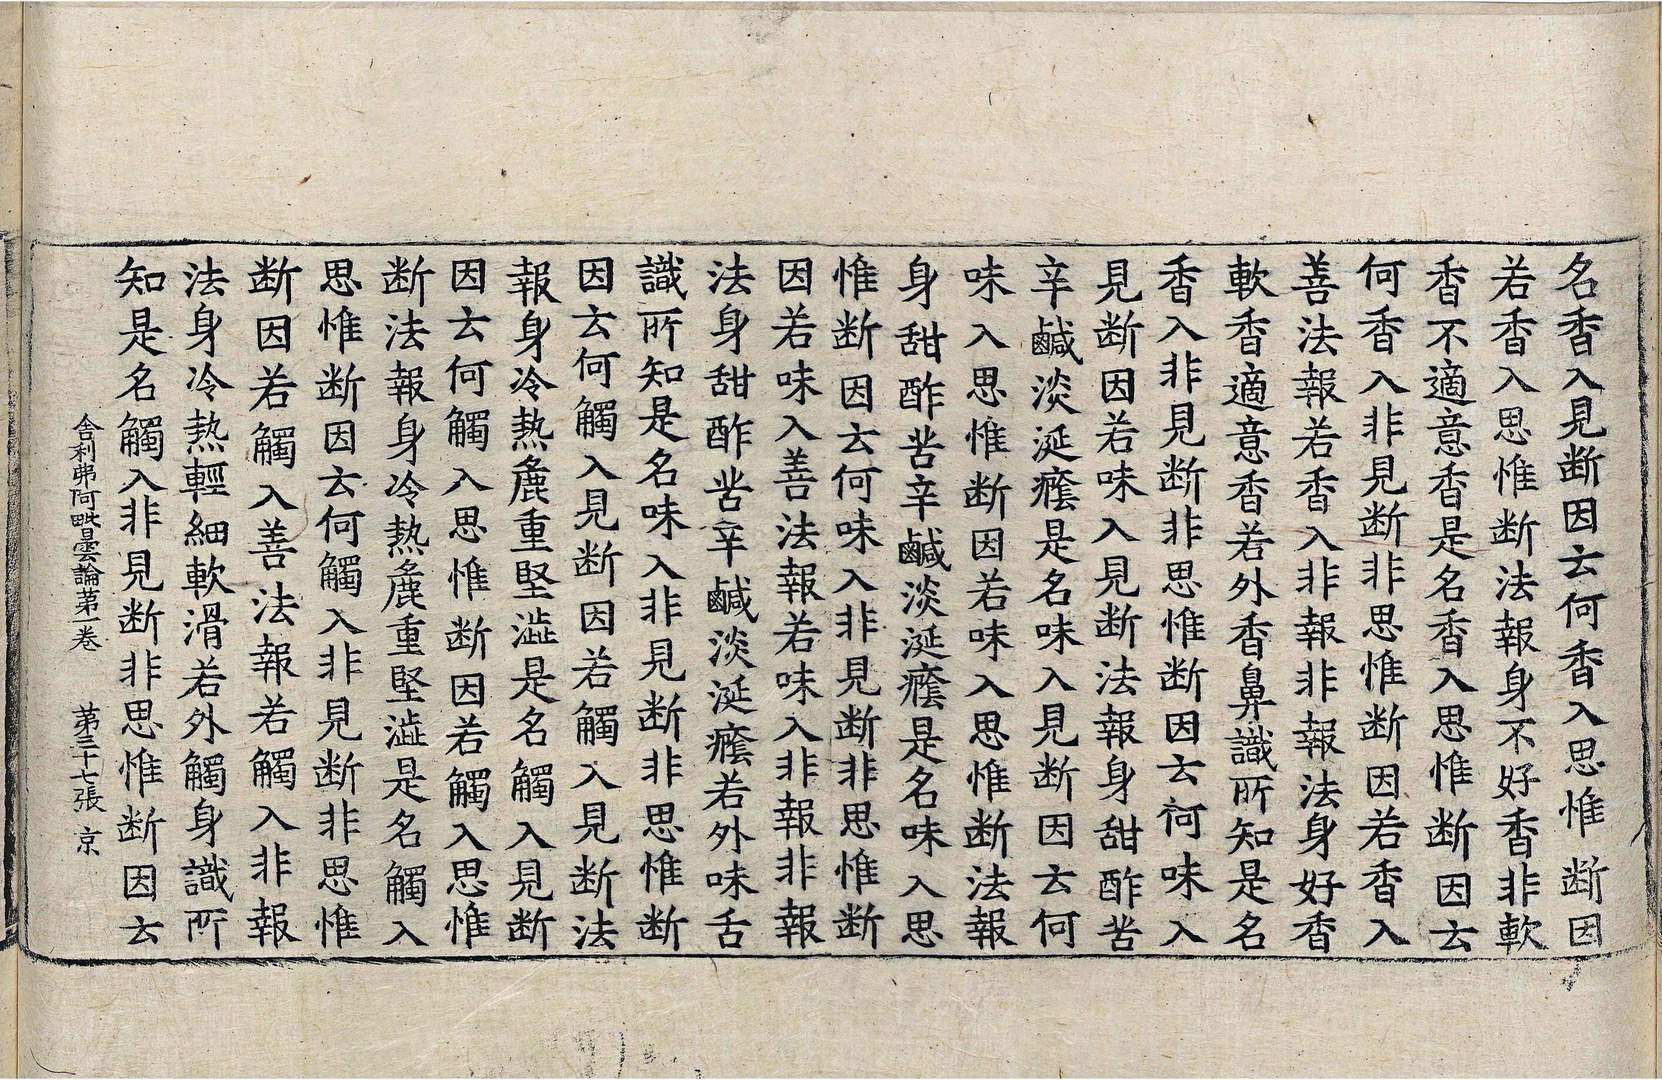 名香入見断因云何香入思惟断因
若香入思惟断法報身不好香非軟
香不適意香是名香入思惟断因云
何香入非見断非思惟断因若香入
善法報若香入非報非報法身好香
軟香適意香若外香鼻識所知是名
香入非見断非思惟断因云何味入
見断因若味入見断法報身甜酢苦
辛鹹淡涎癊是名味入見断因云何
味入思惟断因若味入思惟断法報
身甜酢苦辛鹹淡涎癊是名味入思
惟断因云何味入非見断非思惟断
因若味入善法報若味入非報非報
法身甜酢苦辛鹹淡涎癊若外味舌
識所知是名味入非見断非思惟断
因云何觸入見断因若觸入見断法
報身冷熱麁重堅澁是名觸入見断
因云何觸入思惟断因若觸入思惟
断法報身冷熱麁重堅澁是名觸入
思惟断因云何觸入非見断非思惟
断因若觸入善法報若觸入非報
法身冷熱輕細軟滑若外觸身識所
知是名觸入非見断非思惟断因云
舍利弗阿毗曇論第一卷 第三十七張 京